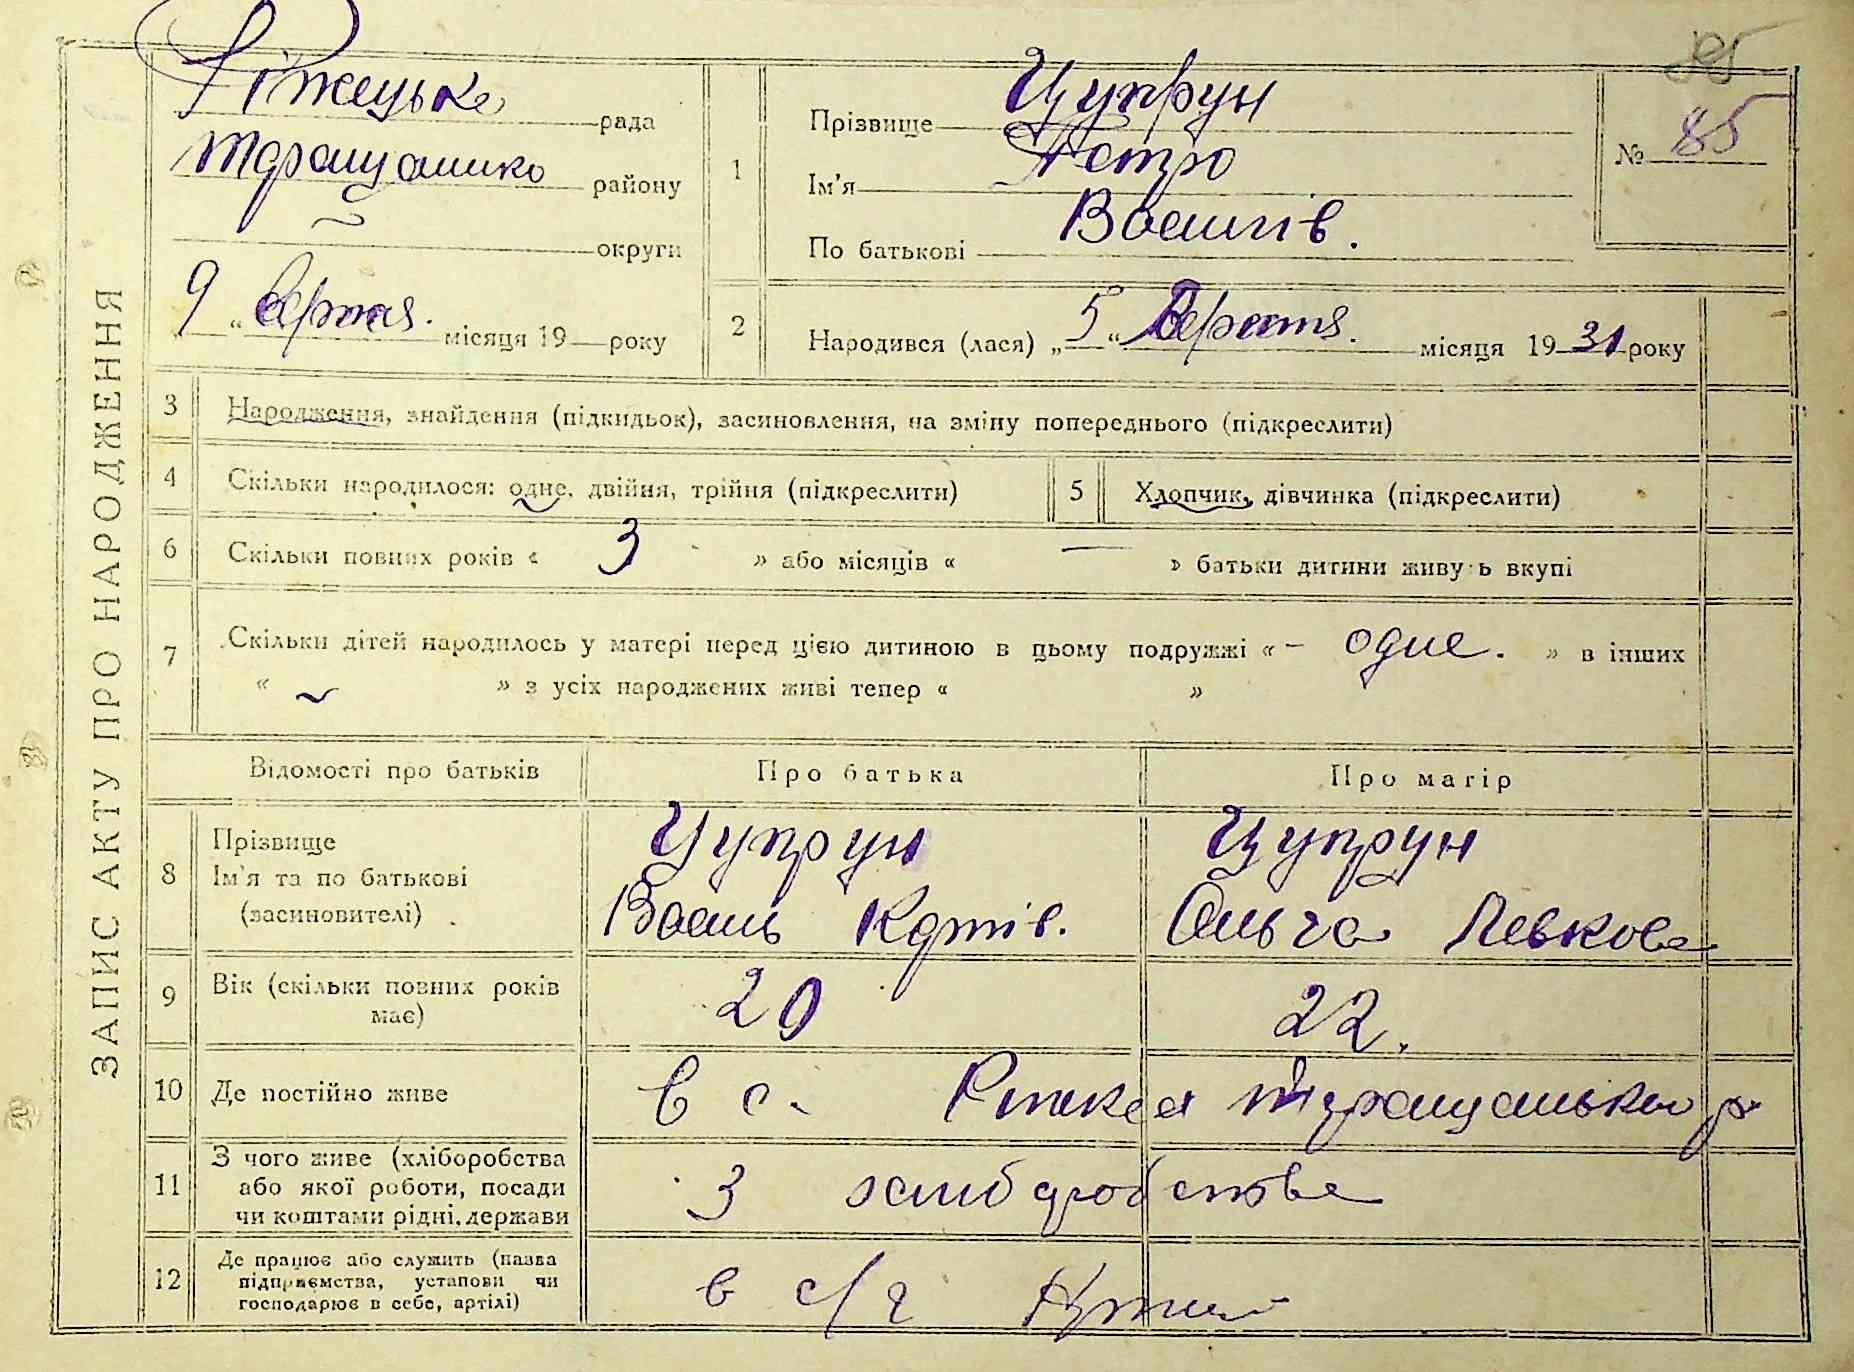 ЗАПИС АКТУ ПРО НАРОДЖЕННЯ
Ріжецька рада
Таращансько району
округи
9 " Вересня. місяця 19 року
1
Прізвище Цупрун
Ім'я Петро
По батькові Василів.
№ 85
85
2
Народився (лася) „ 5 " Вересня. місяця 19 31 року
3 Народження, знайдення (підкидьок), засиновлення, на зміну попереднього (підкреслити)
4 Скільки народилося: одне, двійня, трійня (підкреслити)
5 Хлопчик, дівчинка (підкреслити)
6 Скільки повних років « 3 » або місяців « — » батьки дитини живуть вкупі
7 Скільки дітей народилось у матері перед цією дитиною в цьому подружжі « – одне. » в інших
« ~ » з усіх народжених живі тепер « »
Відомості про батьків Про батька Про матір
8 Прізвище
Ім'я та по батькові
(засиновителі)
Цупрун
Василь
Цупрун
Ольга Левкова
9 Вік (скільки повних років
має)
29
22.
10 Де постійно живе
в с. Ріжках Таращанського р
11 З чого живе (хліборобства
або якої роботи, посади
чи коштами рідні, держави
З хліборобства
12 Де працює або служить (назва
підприємства, установи чи
господарює в себе, артілі)
в с/г